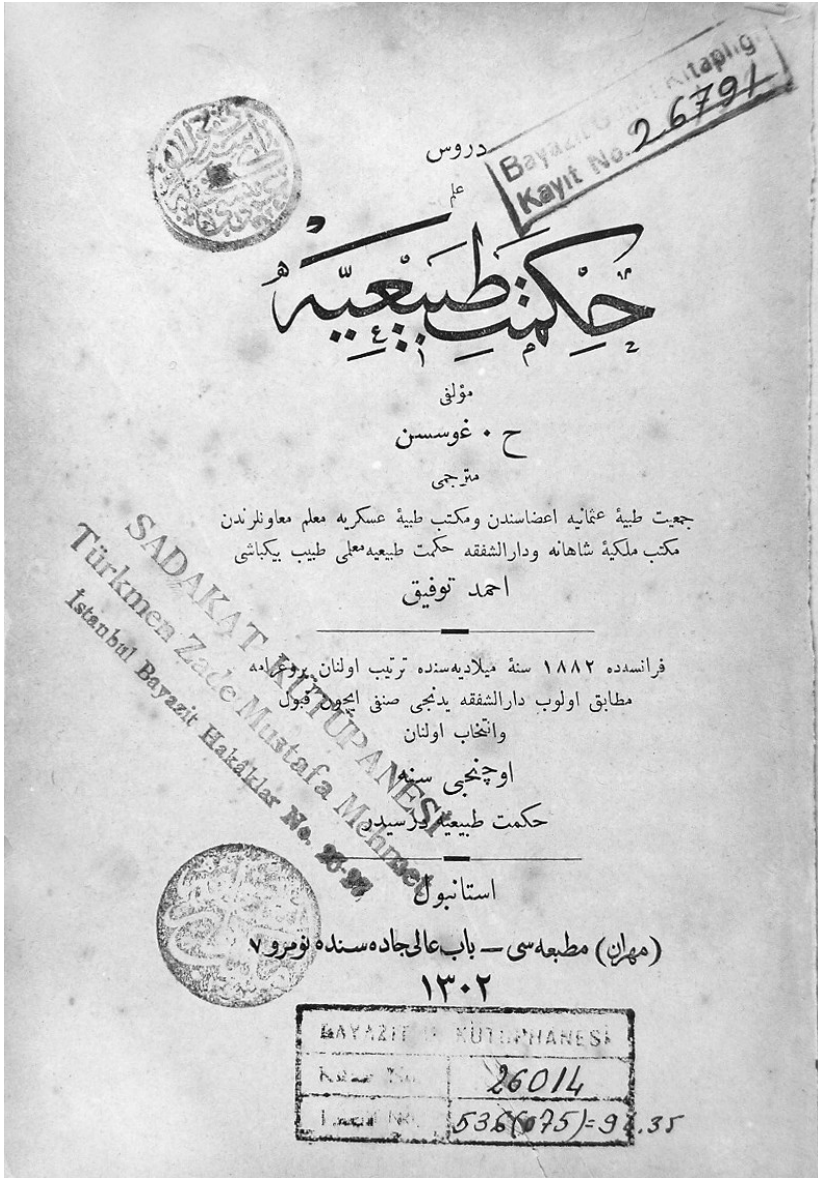 Bayazit Kitaplığ
Kayıt No. 26791
دروس
علم
حِكْمَتِ طَبِيعِيَّه
مؤلفى
ح ٠ غوسسن
مترجمى
جمعيت طبيۀ عثمانيه اعضاسندن ومكتب طبيۀ عسكريه معلم معاونلرندن
مكتب ملكيۀ شاهانه ودارالشفقه حكمت طبيعيه معلمى طبيب بيكباشى
احمد توفيق
فرانسه‌ده ١٨٨٢ سنۀ ميلاديه‌سنده ترتيب اولنان پروغرامه
مطابق اولوب دارالشفقه يدنجى صنفى ايچون قبول
وانتخاب اولنان
اوچنجى سنه
حكمت طبيعيه درسيدر
SADAKAT KÜTÜPANESİ
Türkmen Zade Mustafa Mehmet
İstanbul Bayazit Hakâklar No. 25-27
استانبول
(مهران) مطبعه‌سى — باب عالى جاده‌سنده نومرو ٧
١٣٠٢
BAYAZIT KÜTÜPHANESİ
26014
536(075)=94.35